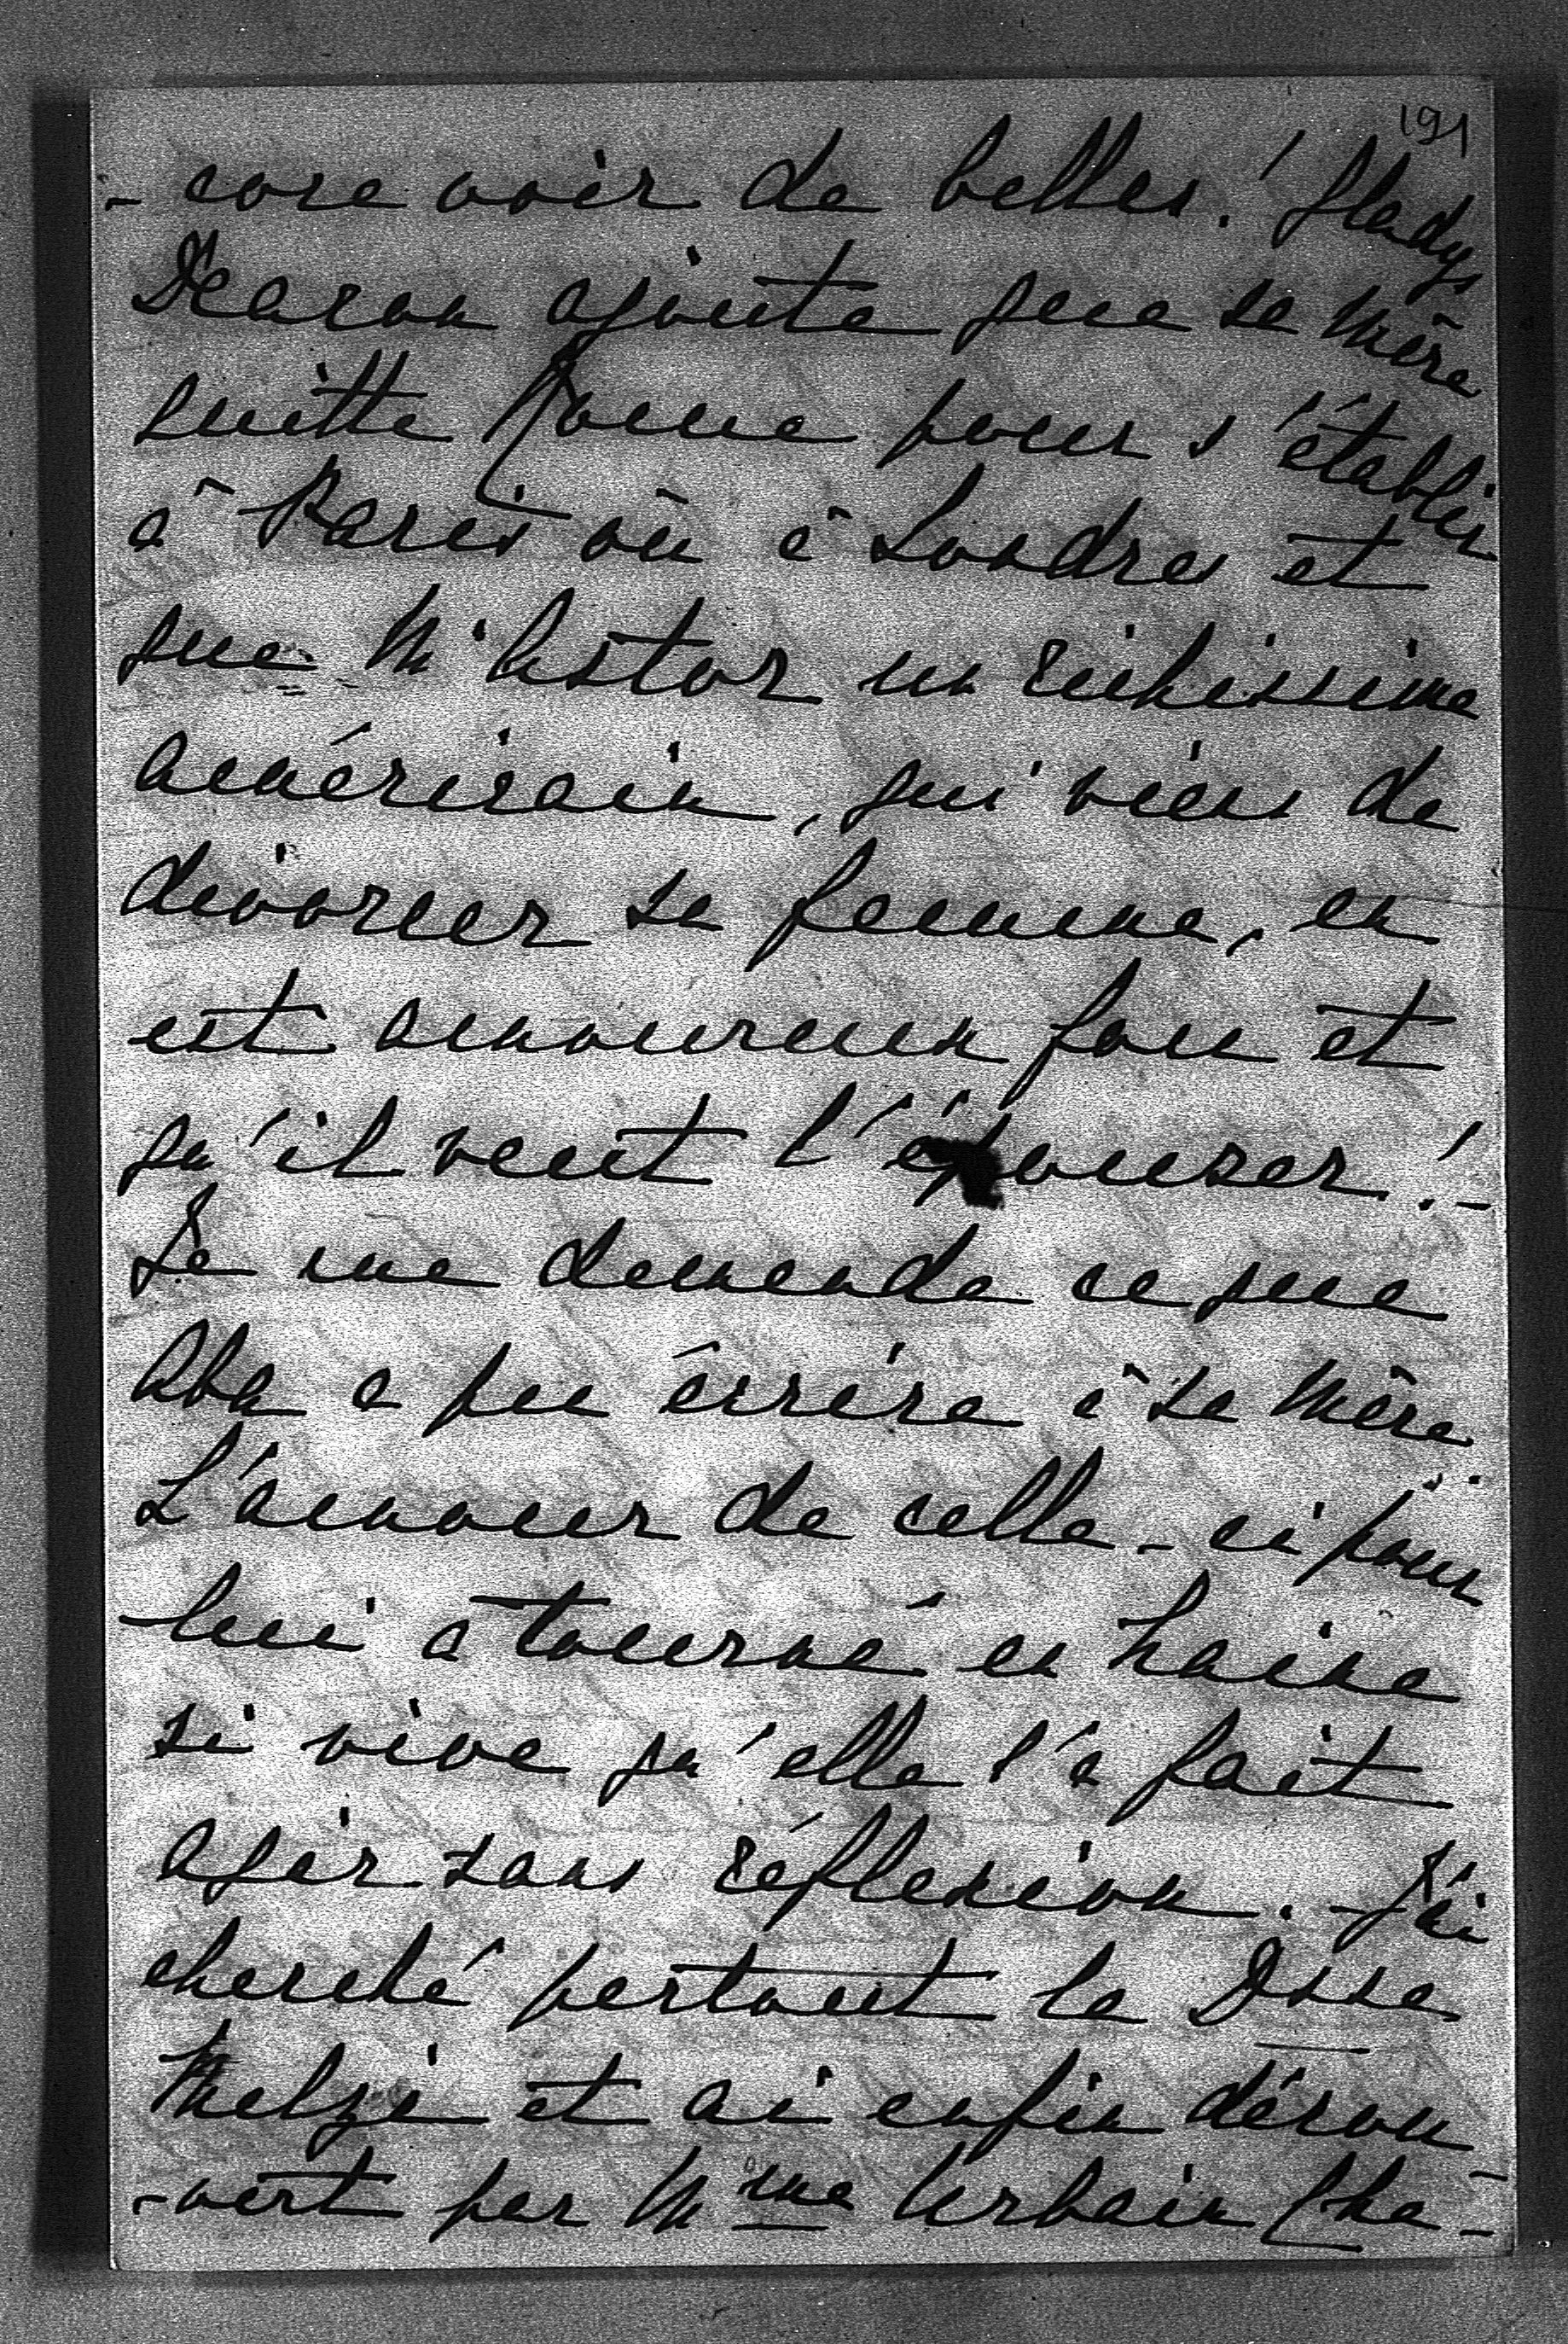 191
- core voir de belles ! Gladys
Deacon ajoute que sa mère
quitte Rome pour s'établir
à Paris où à Londres et
que M. Astor un richissime
américain, qui viens de
divorcer sa femme, en
est amoureux fou et
qu'il veut l'épouser ! -
Je me demande ce que
Aba a pu écrire à sa mère.
L'amour de celle-ci pour
lui a tourné en haine
si vive qu'elle l'a fait
agir sans réflexion. - J'ai
cherché partout la Dsse
Melzi et ai enfin décou
- vert par Mme Urbain Cha -